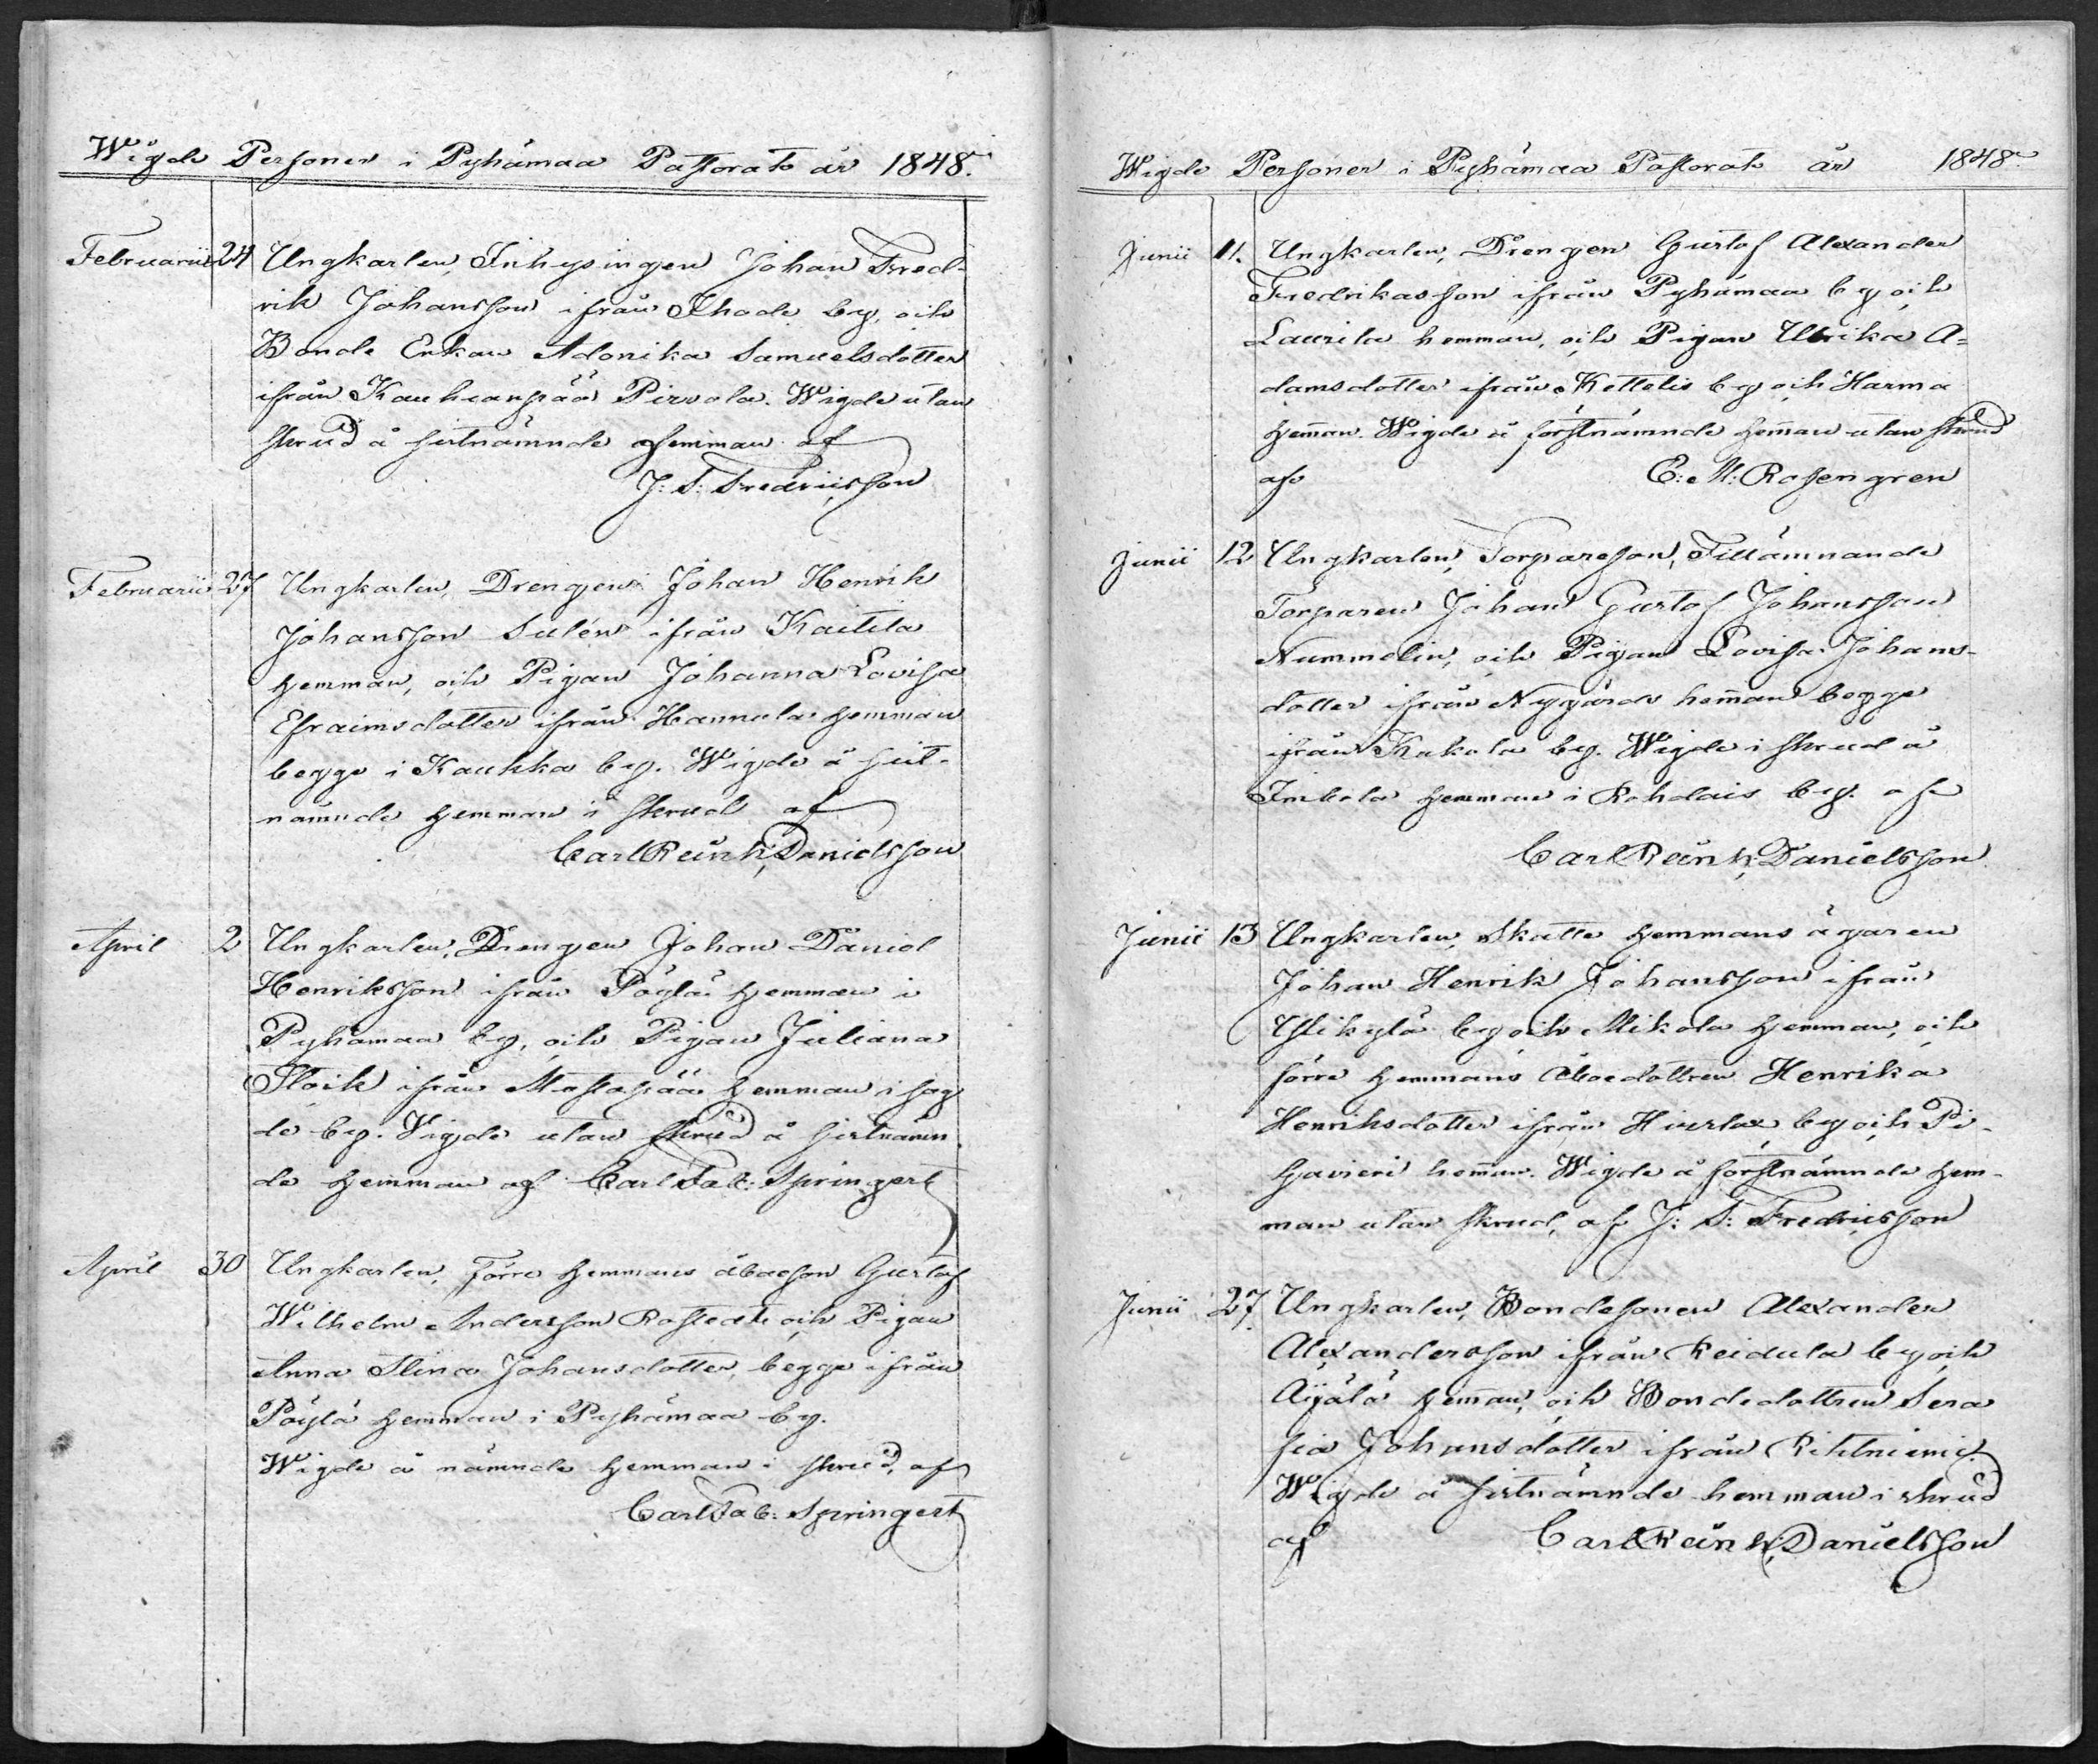 Wigde Personer i Pyhämaa Pastorat år 1848.
Februarii 24 Ungkarlen, Inhysingen Johan Fred-
rik Johansson ifrån Ihode by, och
Bonde Enkan Adonika Samuelsdotter
ifrån Kauhianpää Pirvola. Wigde utan
skrud å sistnämnde hemman af
J: T: Fredricsson
Februarii 27 Ungkarlen, Drengen Johan Henrik
Johansson Sulén ifrån Kaitila
hemman, och Pigan Johanna Lovisa
Efraimsdotter ifrån Hannula hemman
begge i Kaukka by. Wigde å sist-
nämnde hemman i skrud af
Carl Reinh; Danielsson
April 2 Ungkarlen, Drengen Johan Daniel
Henriksson ifrån Pöylä hemman i
Pyhämaa by, och Pigan Juliana
Floik ifrån hemman i sag
de by. Vigde utan skrud å sistnämn-
de hemman af Carl Fab: Springert
April 30 Ungkarlen, Förre hemmans åboeson Gustaf
Wilhelm Andersson Rostedt och Pigan
Anna Stina Johansdotter, begge ifrån
Pöylä hemman i Pyhämaa by.
Wigde å nämnde hemman i skrud, af
Carl Fab: Springert
Wigde Personer i Pyhämaa Pastorat år 1848
Junii 11. Ungkarlen, Drengen Gustaf Alexander
Fredrikasson ifrån Pyhämaa by och
Laurila hemman, och Pigan Ulrika A=
damsdotter ifrån Kettelis by och Harma
heman. Wigde å förstnämnde heman utan skrud
af E: M: Rosengren
Junii 12 Ungkarlen, Torpareson, Tillämnande
Torparen Johan Gustaf Johansson
Nummelin, och Pigan Lovisa Johans-
dotter ifrån Nygårds heman begge
ifrån Kukola by. Wigde i skrud å
Imbola hemman i Rohdais by. af
Carl Reinh; Danielsson
Junii 13 Ungkarlen, Skatte hemmans ägaren
Johan Henrik Johansson ifrån
Ylikylä by och Mikola hemman, och
förre hemmans Åboedottren Henrika
Henriksdotter ifrån Hiirlax by och Pi-
heman. Wigde å förstnämnde hem-
man utan skrud, af J: T: Fredricsson
Junii 27. Ungkarlen, Bondesonen Alexander
Alexandersson ifrån Reidula by och
Äijälä heman, och Bondedottren Sera
fia Johansdotter ifrån Rihtniemi.
Wigde å sistnämnde hemman i skrud
af Carl Reinh; Danielsson